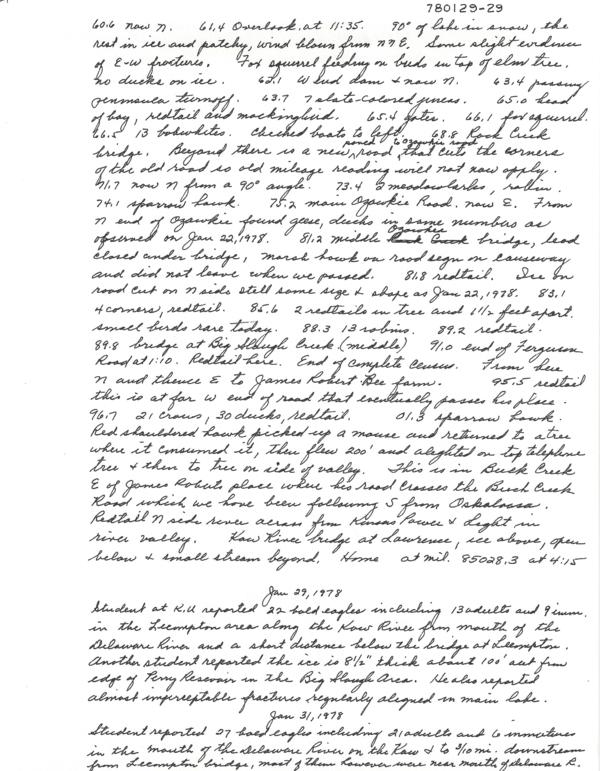 780129-29
60.6 now N. 61.4 Overlook at 11:35. 90% of lake in snow, the
rest in ice and patchy, wind blown from NNE. Some slight evidence
of E-W fractures. Fox squirrel feeding on buds in top of elm tree.
no ducks on ice. 62.1 W end dam & now N. 63.4 passing
peninsula turnoff. 63.7 7 slate-colored juncos. 65.0 head
of bay, redtail and mockingbird. 65.4 gates. 66.1 fox squirrel.
66.5 13 bobwhites. Checked boats to left. 68.8 Rock Creek
bridge. Beyond there is a new, paved road, Ozawkie road that cuts the corners
of the old road so old mileage reading will not now apply.
71.7 now N from a 90° angle. 73.4 2 meadowlarks, robin.
74.1 sparrow hawk. 75.2 main Ozawkie Road. now E. From
N end of Ozawkie found geese, ducks in same numbers as
observed on Jan 22, 1978. 81.2 middle Ozawkie bridge, lead
closed under bridge, marsh hawk on road sign on causeway
and did not leave when we passed. 81.8 redtail. Ice on
road cut on N side still same size & shape as Jan 22, 1978. 83.1
4 corners, redtail. 85.6 2 redtails in tree and 1 1/2 feet apart.
small birds rare today. 88.3 13 robins. 89.2 redtail.
89.8 bridge at Big Slough Creek (middle) 91.0 end of Ferguson
Road at 1:10. Redtail here. End of complete census. From here
N and thence E to James Robert Bee farm. 95.5 redtail
this is at far W end of road that eventually passes his place.
96.7 21 crows, 30 ducks, redtail. 01.3 sparrow hawk.
Red shouldered hawk picked up a mouse and returned to a tree
where it consumed it, then flew 200' and alighted on top telephone
tree & then to tree on side of valley. This is in Buck Creek
E of James Roberts place where his road crosses the Buck Creek
Road which we have been following S from Oskaloosa.
Redtail N side river across from Kansas Power & Light in
river valley. Kaw River bridge at Lawrence, ice above, open
below & small stream beyond. Home at mil. 85028.3 at 4:15
Jan 29, 1978
Student at K.U reported 22 bald eagles including 13 adults and 9 imm.
in the Lecompton area along the Kaw River from mouth of the
Delaware River and a short distance below the bridge at Lecompton.
Another student reported the ice is 8 1/2" thick about 100' out from
edge of Perry Reservoir in the Big Slough Area. He also reported
almost imperceptable fractures regularly aligned in main lake.
Jan 31, 1978
Student reported 27 bald eagles including 21 adults and 6 immatures
in the mouth of the Delaware River on the Kaw & to 5/10 mi. downstream
from Lecompton bridge, most of them however were near mouth of Delaware R.